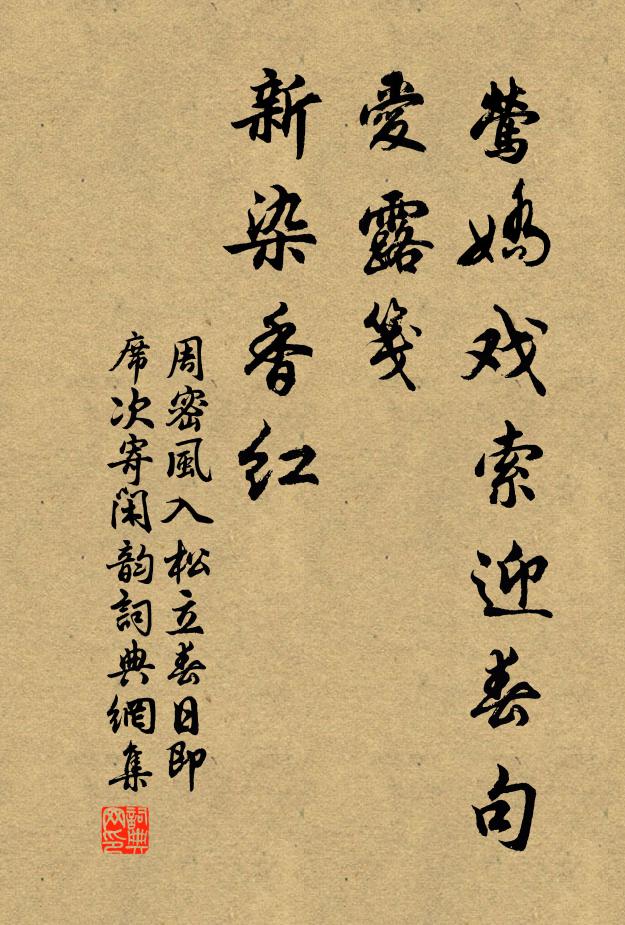 鶯嬌戏索迎春句
愛露箋
新染香红
周密風入松立春日即
席次寄閑韵詞典網集
詞典网印